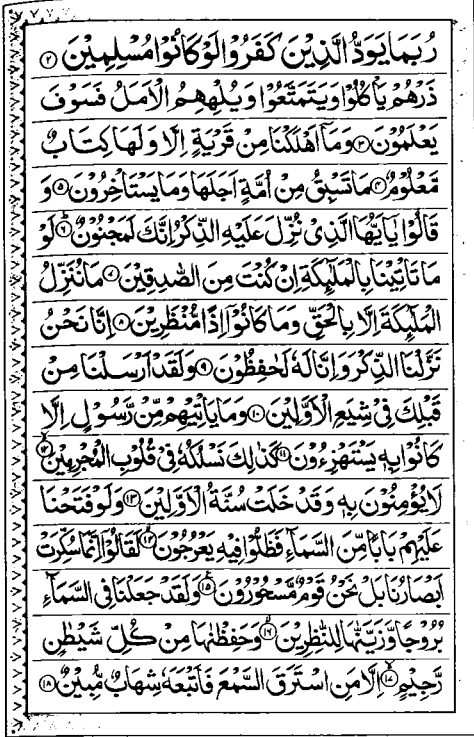 رُبَمَا يَوَدُّ الَّذِيْنَ كَفَرُوْا لَوْ كَانُوْا مُسْلِمِيْنَ ۝۲
ذَرْهُمْ يَاْكُلُوْا وَيَتَمَتَّعُوْا وَيُلْهِهِمُ الْاَمَلُ فَسَوْفَ
يَعْلَمُوْنَ ۝۳ وَمَاۤ اَهْلَكْنَا مِنْ قَرْيَةٍ اِلَّا وَلَهَا كِتَابٌ
مَّعْلُوْمٌ ۝۴ مَا تَسْبِقُ مِنْ اُمَّةٍ اَجَلَهَا وَمَا يَسْتَاْخِرُوْنَ ۝۵ وَ
قَالُوْا يٰۤاَيُّهَا الَّذِىْ نُزِّلَ عَلَيْهِ الذِّكْرُ اِنَّكَ لَمَجْنُوْنٌ ۝۶ لَوْ
مَا تَاْتِيْنَا بِالْمَلٰٓئِكَةِ اِنْ كُنْتَ مِنَ الصّٰدِقِيْنَ ۝۷ مَا نُنَزِّلُ
الْمَلٰٓئِكَةَ اِلَّا بِالْحَقِّ وَمَا كَانُوْۤا اِذًا مُّنْظَرِيْنَ ۝۸ اِنَّا نَحْنُ
نَزَّلْنَا الذِّكْرَ وَاِنَّا لَهٗ لَحٰفِظُوْنَ ۝۹ وَلَقَدْ اَرْسَلْنَا مِنْ
قَبْلِكَ فِىْ شِيَعِ الْاَوَّلِيْنَ ۝۱۰ وَمَا يَاْتِيْهِمْ مِّنْ رَّسُوْلٍ اِلَّا
كَانُوْا بِهٖ يَسْتَهْزِءُوْنَ ۝۱۱ كَذٰلِكَ نَسْلُكُهٗ فِىْ قُلُوْبِ الْمُجْرِمِيْنَ ۝۱۲
لَا يُؤْمِنُوْنَ بِهٖ وَقَدْ خَلَتْ سُنَّةُ الْاَوَّلِيْنَ ۝۱۳ وَلَوْ فَتَحْنَا
عَلَيْهِمْ بَابًا مِّنَ السَّمَآءِ فَظَلُّوْا فِيْهِ يَعْرُجُوْنَ ۝۱۴ لَقَالُوْۤا اِنَّمَا سُكِّرَتْ
اَبْصَارُنَا بَلْ نَحْنُ قَوْمٌ مَّسْحُوْرُوْنَ ۝۱۵ وَلَقَدْ جَعَلْنَا فِى السَّمَآءِ
بُرُوْجًا وَّزَيَّنّٰهَا لِلنّٰظِرِيْنَ ۝۱۶ وَحَفِظْنٰهَا مِنْ كُلِّ شَيْطٰنٍ
رَّجِيْمٍ ۝۱۷ اِلَّا مَنِ اسْتَرَقَ السَّمْعَ فَاَتْبَعَهٗ شِهَابٌ مُّبِيْنٌ ۝۱۸